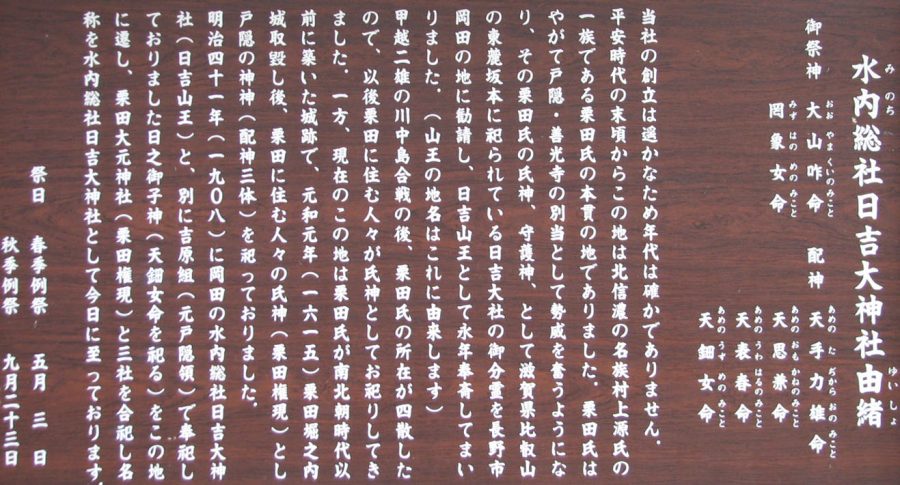 水内総社日吉大神社由緒
みのち ゆいしょ
御祭神 大山咋命 配神 天手力雄命
おお やまくいのみこと あめの た ぢからおのみこと
罔象女命 天思兼命
みず はの めの みこと あめの おも かねのみこと
天表春命
あめの うわ はるのみこと
天鈿女命
あめの うず めの みこと
当社の創立は遥かなため年代は確かでありません。
平安時代の末頃からこの地は北信濃の名族村上源氏の
一族である栗田氏の本貫の地でありました。栗田氏は
やがて戸隠・善光寺の別当として勢威を奮うようにな
り、その栗田氏の氏神、守護神、として滋賀県比叡山
の東麓坂本に祀られている日吉大社の御分霊を長野市
岡田の地に勧請し、日吉山王として永年奉斎してまい
りました。（山王の地名はこれに由来します）
甲越二雄の川中島合戦の後、栗田氏の所在が四散した
ので、以後栗田に住む人々が氏神としてお祀りしてき
ました。一方、現在のこの地は栗田氏が南北朝時代以
前に築いた城跡で、元和元年（一六一五）栗田堀之内
城取毀し後、栗田に住む人々の氏神（栗田権現）とし
戸隠の神神（配神三体）を祀っておりました。
明治四十一年（一九〇八）に岡田の水内総社日吉大神
社（日吉山王）と、別に吉原組（元戸隠領）で奉祀し
ておりました日之御子神（天鈿女命を祀る）をこの地
に遷し、栗田大元神社（栗田権現）と三社を合祀し名
称を水内総社日吉大神社として今日に至っております。
祭日 春季例祭 五月三日
秋季例祭 九月二十三日